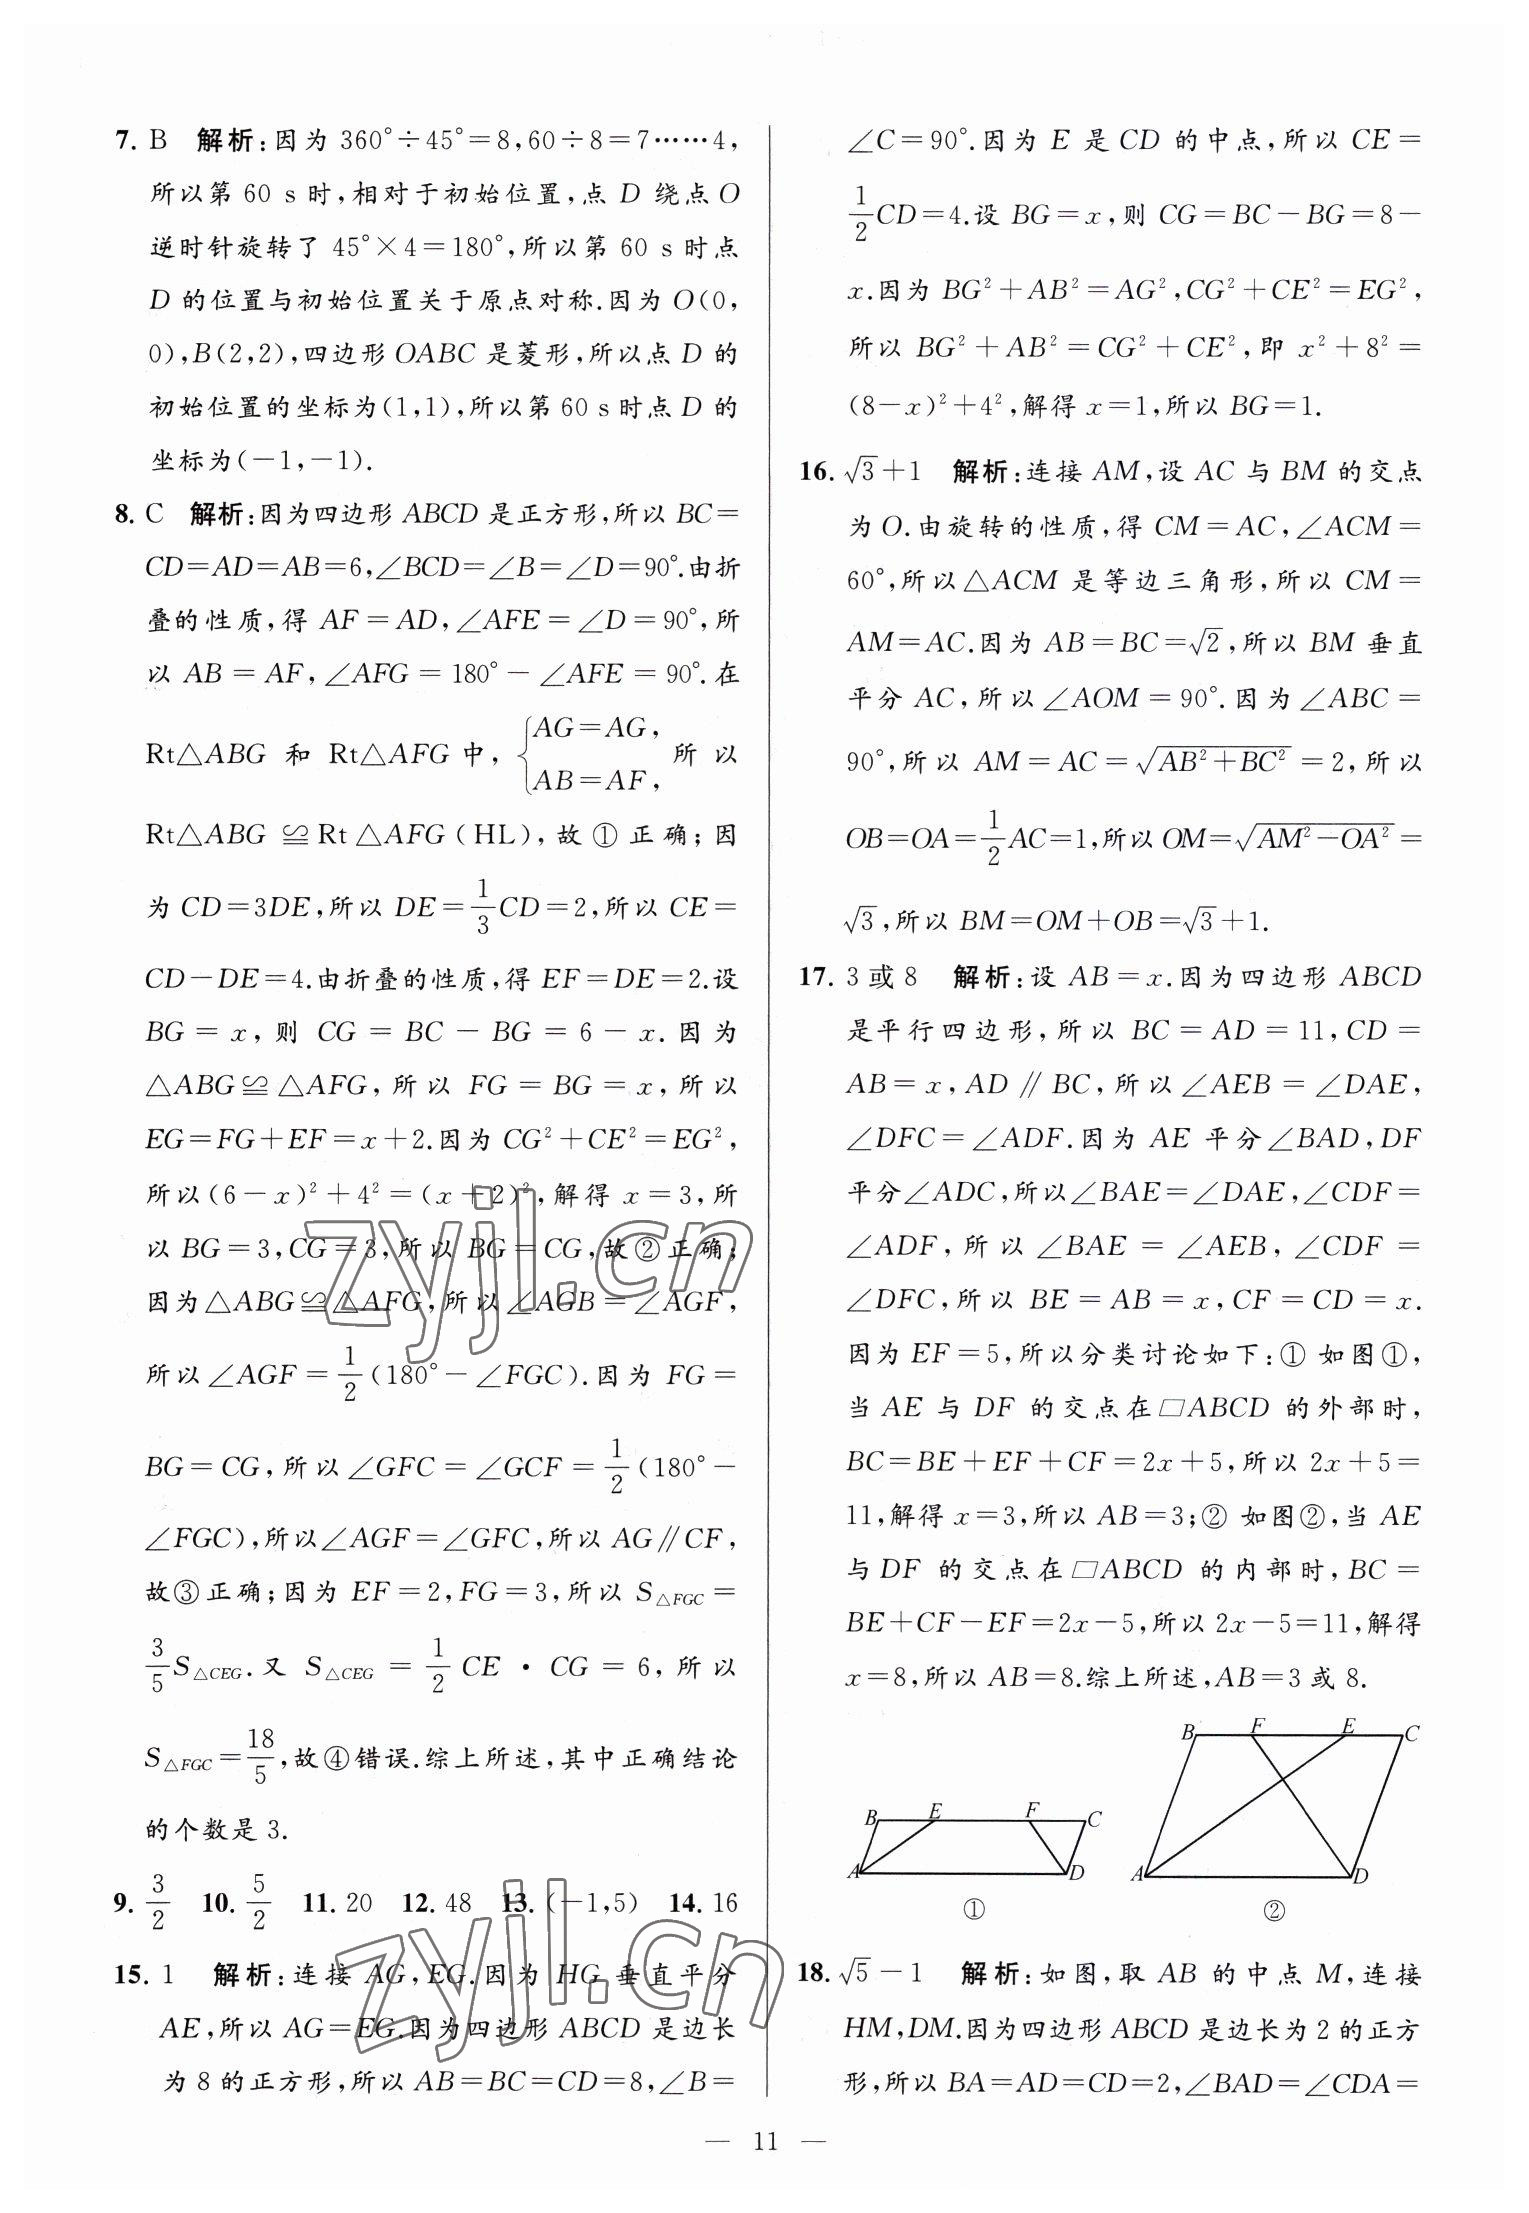 7. B 解析:因为 360°÷45°=8,60÷8=7……4,
所以第 60 s 时,相对于初始位置,点 D 绕点 O
逆时针旋转了 45°×4=180°,所以第 60 s 时点
D 的位置与初始位置关于原点对称.因为 O(0,
0),B(2,2),四边形 OABC 是菱形,所以点 D 的
初始位置的坐标为(1,1),所以第 60 s 时点 D 的
坐标为(-1,-1).
8. C 解析:因为四边形 ABCD 是正方形,所以 BC=
CD=AD=AB=6,∠BCD=∠B=∠D=90°.由折
叠的性质,得 AF=AD,∠AFE=∠D=90°,所
以 AB=AF,∠AFG=180°-∠AFE=90°.在
Rt△ABG 和 Rt△AFG 中,{AG=AG, AB=AF, 所以
Rt△ABG≌Rt△AFG(HL),故①正确;因
为 CD=3DE,所以 DE=1/3CD=2,所以 CE=
CD-DE=4.由折叠的性质,得 EF=DE=2.设
BG=x,则 CG=BC-BG=6-x.因为
△ABG≌△AFG,所以 FG=BG=x,所以
EG=FG+EF=x+2.因为 CG²+CE²=EG²,
所以(6-x)²+4²=(x+2)²,解得 x=3,所
以 BG=3,CG=3,所以 BG=CG,故②正确;
因为△ABG≌△AFG,所以∠AGB=∠AGF,
所以∠AGF=1/2(180°-∠FGC).因为 FG=
BG=CG,所以∠GFC=∠GCF=1/2(180°-
∠FGC),所以∠AGF=∠GFC,所以 AG∥CF,
故③正确;因为 EF=2,FG=3,所以 S△FGC=
3/5S△CEG.又 S△CEG=1/2CE·CG=6,所以
S△FGC=18/5,故④错误.综上所述,其中正确结论
的个数是 3.
9. 3/2 10. 5/2 11. 20 12. 48 13. (-1,5) 14. 16
15. 1 解析:连接 AG,EG.因为 HG 垂直平分
AE,所以 AG=EG.因为四边形 ABCD 是边长
为 8 的正方形,所以 AB=BC=CD=8,∠B=
∠C=90°.因为 E 是 CD 的中点,所以 CE=
1/2CD=4.设 BG=x,则 CG=BC-BG=8-
x.因为 BG²+AB²=AG²,CG²+CE²=EG²,
所以 BG²+AB²=CG²+CE²,即 x²+8²=
(8-x)²+4²,解得 x=1,所以 BG=1.
16. √3+1 解析:连接 AM,设 AC 与 BM 的交点
为 O.由旋转的性质,得 CM=AC,∠ACM=
60°,所以△ACM 是等边三角形,所以 CM=
AM=AC.因为 AB=BC=√2,所以 BM 垂直
平分 AC,所以∠AOM=90°.因为∠ABC=
90°,所以 AM=AC=√(AB²+BC²)=2,所以
OB=OA=1/2AC=1,所以 OM=√(AM²-OA²)=
√3,所以 BM=OM+OB=√3+1.
17. 3 或 8 解析:设 AB=x.因为四边形 ABCD
是平行四边形,所以 BC=AD=11,CD=
AB=x,AD∥BC,所以∠AEB=∠DAE,
∠DFC=∠ADF.因为 AE 平分∠BAD,DF
平分∠ADC,所以∠BAE=∠DAE,∠CDF=
∠ADF,所以∠BAE=∠AEB,∠CDF=
∠DFC,所以 BE=AB=x,CF=CD=x.
因为 EF=5,所以分类讨论如下:① 如图①,
当 AE 与 DF 的交点在▱ABCD 的外部时,
BC=BE+EF+CF=2x+5,所以 2x+5=
11,解得 x=3,所以 AB=3;② 如图②,当 AE
与 DF 的交点在▱ABCD 的内部时,BC=
BE+CF-EF=2x-5,所以 2x-5=11,解得
x=8,所以 AB=8.综上所述,AB=3 或 8.
B E F C
A D
①
B F E C
A D
②
18. √5-1 解析:如图,取 AB 的中点 M,连接
HM,DM.因为四边形 ABCD 是边长为 2 的正方
形,所以 BA=AD=CD=2,∠BAD=∠CDA=
— 11 —
zyjl.cn
zyjl.cn